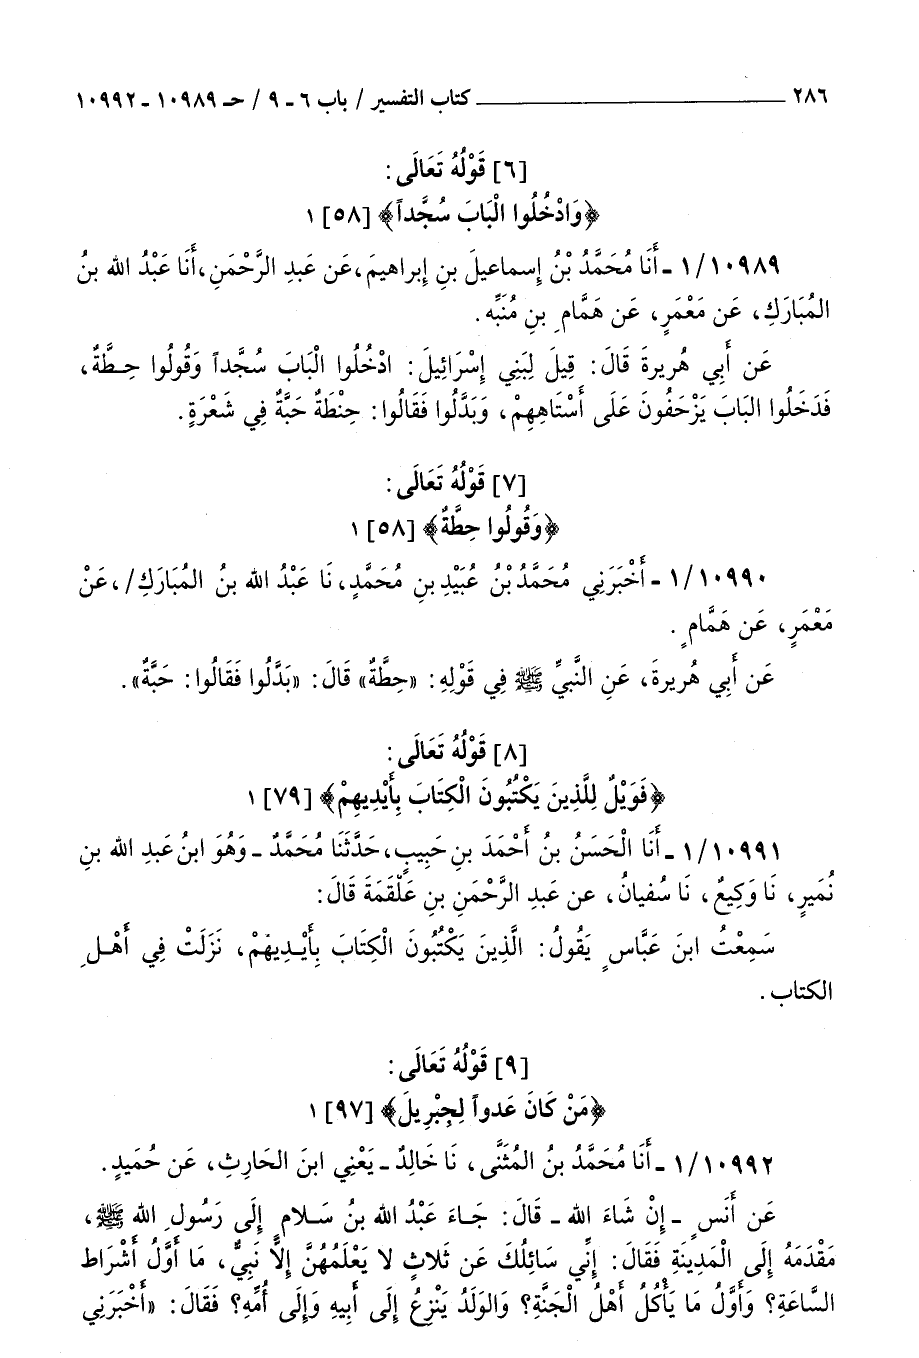 ٢٨٦ ـــــــــ كتاب التفسير / باب ٦ - ٩ / حـ ١٠٩٨٩ - ١٠٩٩٢
[٦] قَوْلُهُ تَعَالَى:
﴿وَادْخُلُوا الْبَابَ سُجَّداً﴾ [٥٨] ١
١/١٠٩٨٩ - أَنَا مُحَمَّدُ بْنُ إسماعيلَ بنِ إبراهيمَ، عَن عَبدِ الرَّحْمَنِ، أَنَا عَبْدُ الله بنُ
المُبَارَكِ، عَن مَعْمَرٍ، عَن هَمَّامِ بنِ مُنَبِّه.
عَن أَبِي هُريرةَ قَالَ: قِيلَ لِبَنِي إِسْرَائِيلَ: ادْخُلُوا الْبَابَ سُجَّداً وَقُولُوا حِطَّةٌ،
فَدَخَلُوا البَابَ يَزْحَفُونَ عَلَى أَسْتَاهِهِمْ، وَبَدَّلُوا فَقَالُوا: حِنْطَةٌ حَبَّةٌ فِي شَعْرَةٍ.
[٧] قَوْلُهُ تَعَالَى:
﴿وَقُولُوا حِطَّةٌ﴾ [٥٨] ١
١/١٠٩٩٠ - أَخْبَرَنِي مُحَمَّدُ بْنُ عُبَيْدِ بنِ مُحَمَّدٍ، نَا عَبْدُ الله بنُ المُبَارَكِ/، عَنْ
مَعْمَرٍ، عَن هَمَّامٍ.
عَن أَبِي هُريرةَ، عَنِ النَّبيِّ ﷺ فِي قَوْلِهِ: «حِطَّةٌ» قَالَ: «بَدَّلُوا فَقَالُوا: حَبَّةٌ».
[٨] قَوْلُهُ تَعَالَى:
﴿فَوَيْلٌ لِلَّذِينَ يَكْتُبُونَ الْكِتَابَ بِأَيْدِيهِمْ﴾ [٧٩] ١
١/١٠٩٩١ - أَنَا الْحَسَنُ بنُ أَحْمَدَ بنِ حَبِيبٍ، حَدَّثَنَا مُحَمَّدٌ - وَهُوَ ابنُ عَبدِ الله بنِ
نُمَيرٍ، نَا وَكِيعٌ، نَا سُفيانُ، عن عَبدِ الرَّحْمَنِ بنِ عَلْقَمَةَ قَالَ:
سَمِعْتُ ابنَ عَبَّاسٍ يَقُولُ: الَّذِينَ يَكْتُبُونَ الْكِتَابَ بِأَيْدِيهمْ، نَزَلَتْ فِي أَهْلِ
الكتاب.
[٩] قَوْلُهُ تَعَالَى:
﴿مَنْ كَانَ عَدواً لِجِبْرِيلَ﴾ [٩٧] ١
١/١٠٩٩٢ - أَنَا مُحَمَّدُ بنُ المُثَنَّى، نَا خَالِدٌ - يَعْنِي ابنَ الحَارِثِ، عَن حُمَيدٍ.
عَن أَنَسٍ - إِنْ شَاءَ الله - قَالَ: جَاءَ عَبْدُ الله بنُ سَلامٍ إِلَى رَسُولِ الله ﷺ،
مَقْدَمَهُ إِلَى الْمَدِينَةِ فَقَالَ: إِنِّي سَائِلُكَ عَن ثَلاثٍ لا يَعْلَمُهُنَّ إِلاَّ نَبِيٌّ، مَا أَوَّلُ أَشْرَاط
السَّاعَةِ؟ وَأَوَّلُ مَا يَأْكُلُ أَهْلُ الْجَنَّةِ؟ وَالوَلَدُ يَنْزِعُ إِلَى أَبِيهِ وَإِلَى أُمِّهِ؟ فَقَالَ: «أَخْبَرَنِي